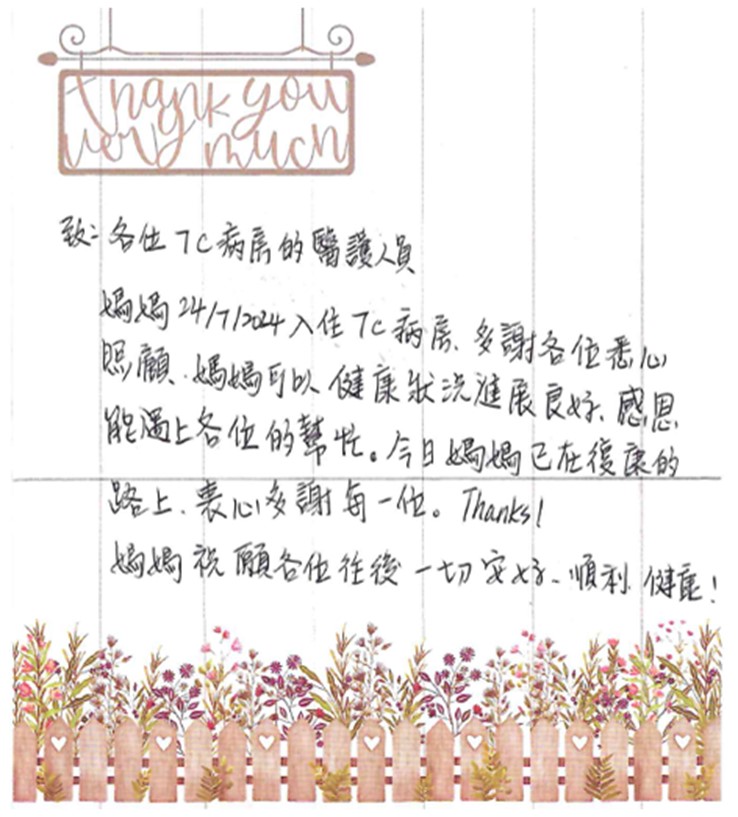 thank you
very much
致：各位 7C 病房的醫護人員
媽媽 24/7/2024 入住 7C 病房、多謝各位悉心
照顧、媽媽可以健康狀況進展良好、感恩
能遇上各位的幫忙。今日媽媽已在復康的
路上、衷心多謝每一位。Thanks!
媽媽祝願各位往後一切安好、順利、健康！